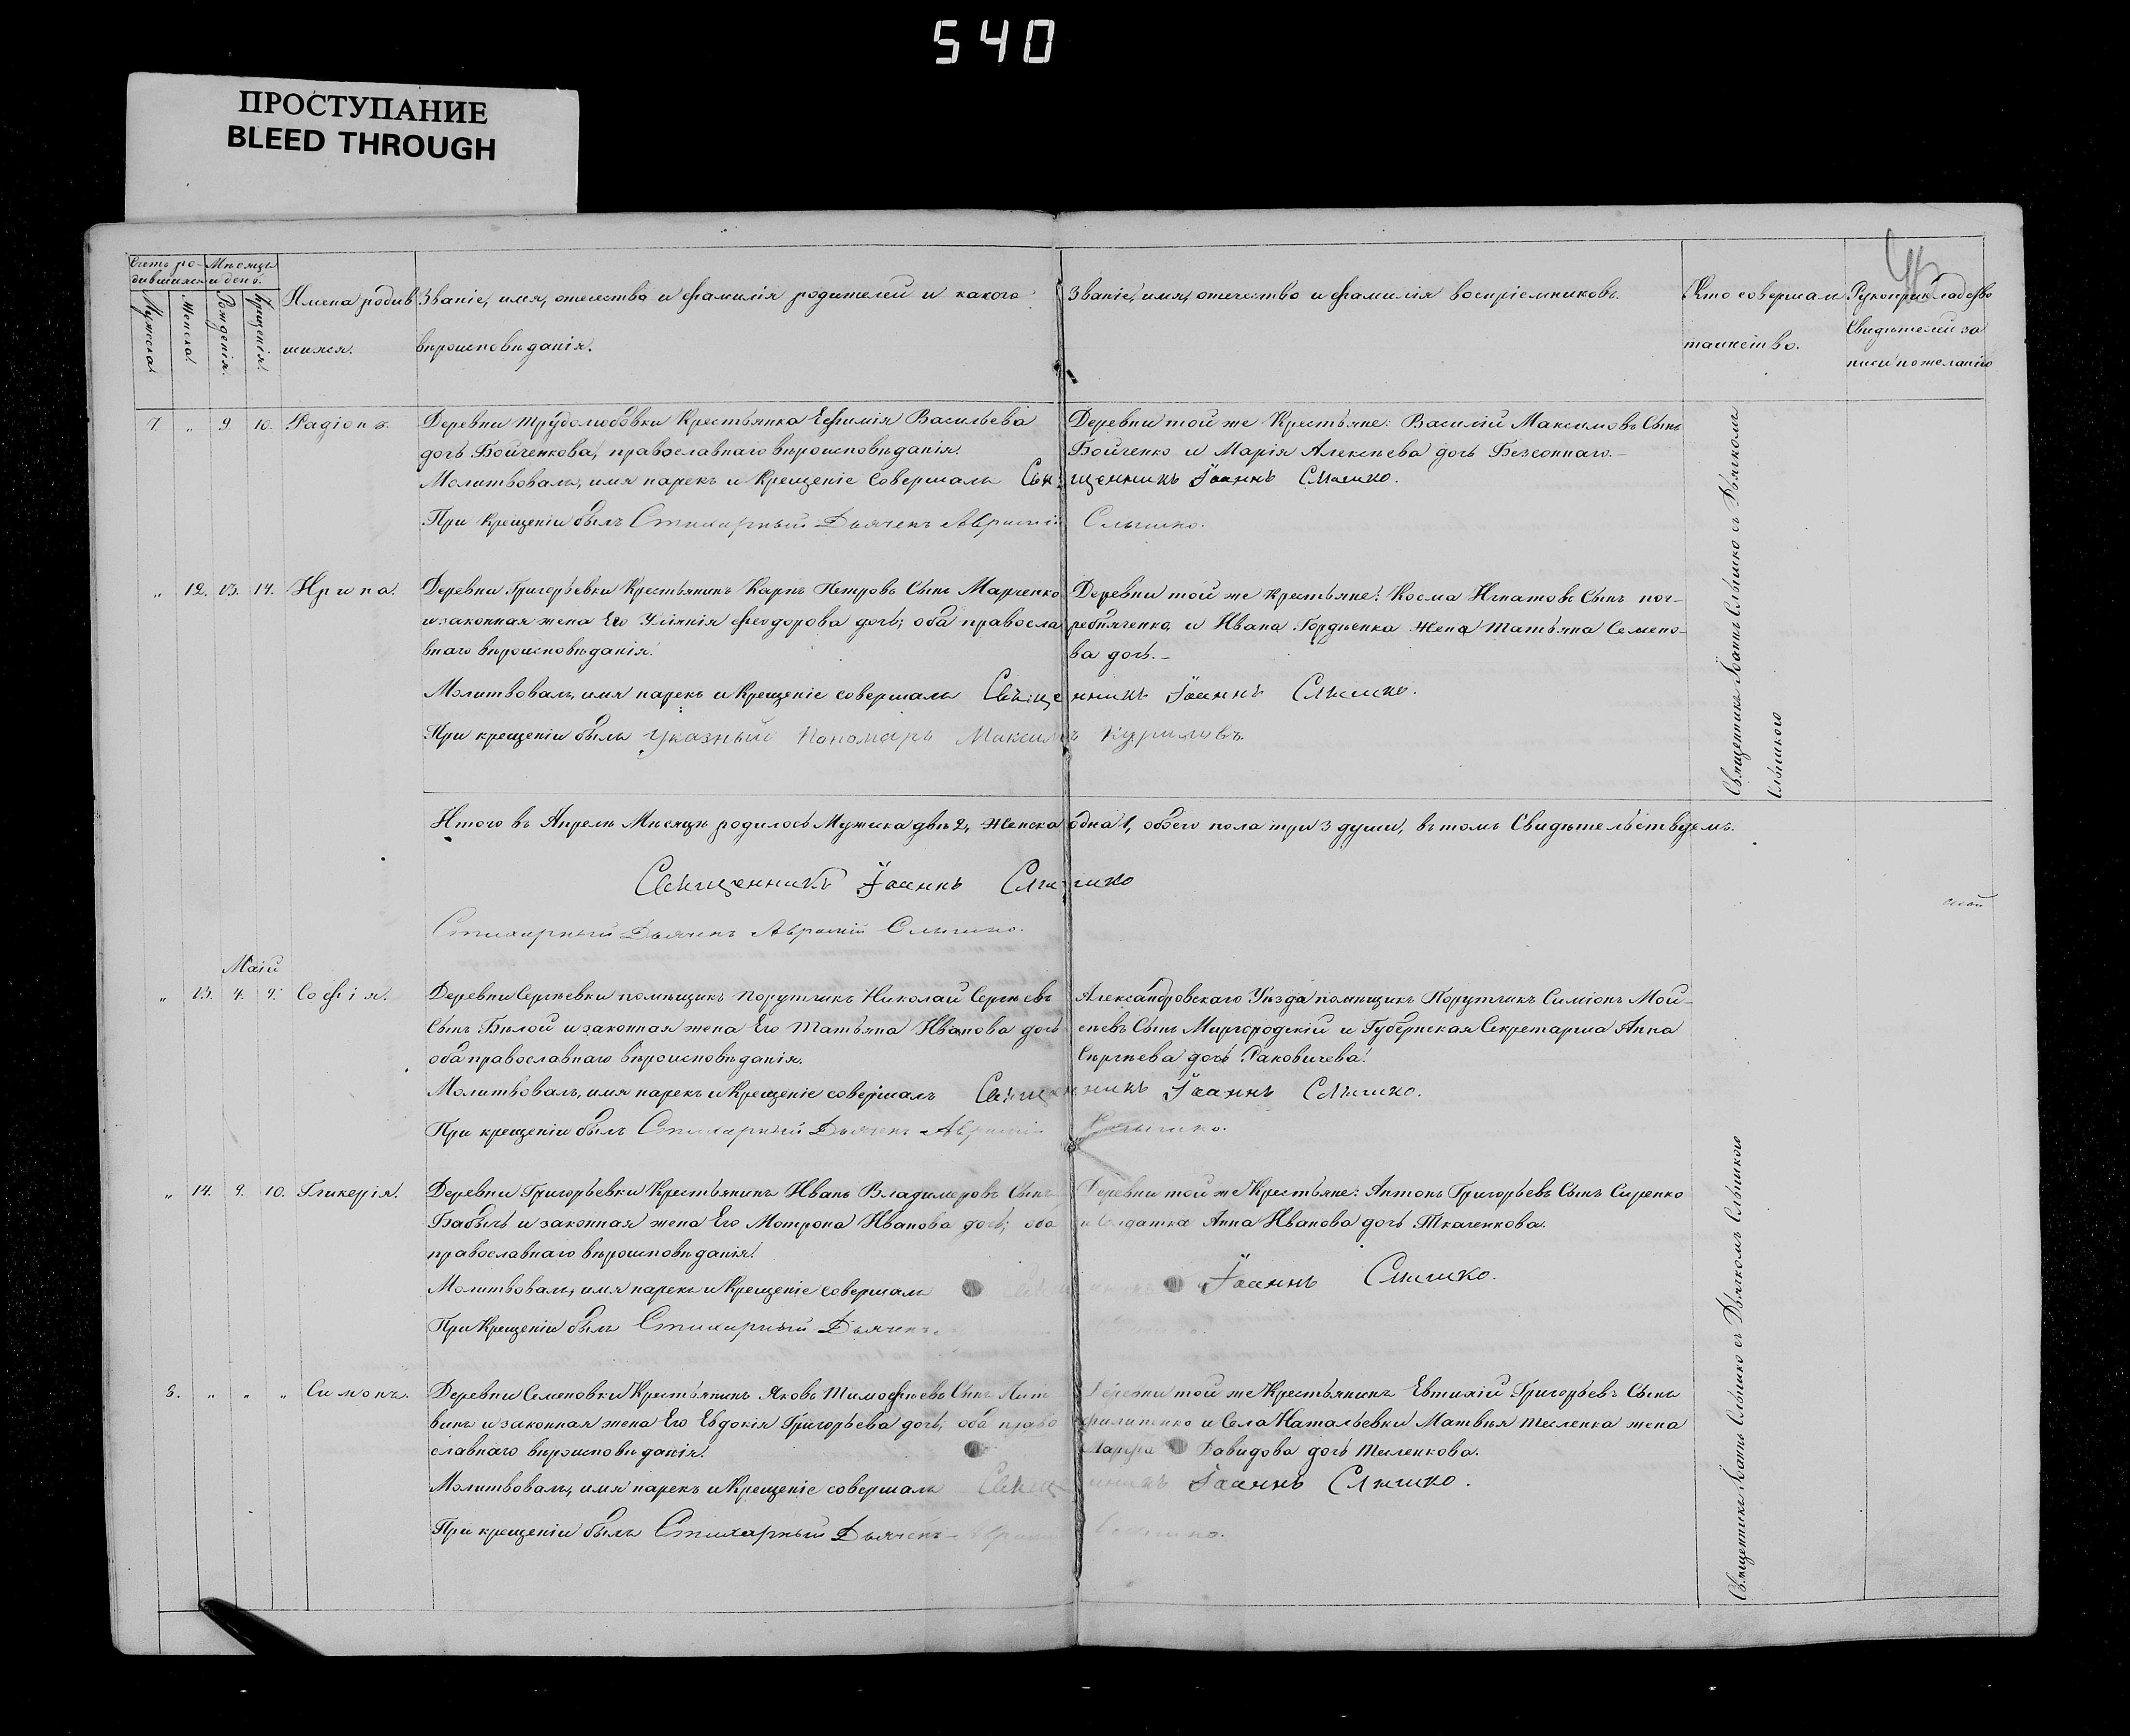 540
ПРОСТУПАНИЕ
BLEED THROUGH
Счетъ ро-
дившихся
Мѣсяцъ
и день.
Мужска
Женска
Рожденія.
Крещенія.
Имена родив
шихся.
Званіе, имя, отечество и фамилія родителей и какого
вѣроисповѣданія.
Званіе, имя, отечество и фамилія воспріемниковъ.
Кто совершал
таинство.
Рукоприкладство
Свидѣтелей за
писи по желанію
7. „ 9. 10. Радіонъ.
Деревни Трудолюбовки Крестьянка Ефимія Васильева
дочь Бойченкова, православнаго вѣроисповѣданія.
Деревни той же Крестьяне: Василій Максимовъ Сынъ
Бойченко и Марія Алексѣева дочь Безсоннаго.
Молитвовалъ, имя нарекъ и Крещеніе совершалъ Священникъ Іоаннъ Слышко.
При крещеніи былъ Стихарный Дьячекъ Аврамій Слышко.
„ 12. 13. 14. Ирина.
Деревни Григорьевки Крестьянинъ Карпъ Петровъ Сынъ Марченко
и законная жена Его Уліянія Феодорова дочь; оба правосла
внаго вѣроисповѣданія.
Деревни той же крестьяне: Косма Игнатовъ Сынъ пог-
ребняченко, и Ивана Гордѣенка жена Татьяна Семено-
ва дочь.
Молитвовалъ, имя нарекъ и Крещеніе совершалъ Священникъ Іоаннъ Слышко.
При крещеніи былъ указный Пономарь Максимъ Куриловъ.
Священникъ Іоаннъ Слышко съ Дьячкомъ
Слышкою
Итого въ Апрелѣ Мѣсяцѣ родилось Мужска двѣ 2, Женска одна 1, обоего пола три 3 души, въ томъ Свидѣтельствуемъ.
Священникъ Іоаннъ Слышко
Стихарный Дьячекъ Аврамій Слышко.
Маій
„ 13. 4. 9. Софія.
Деревни Сергѣевки помѣщикъ Порутчикъ Николай Сергѣевъ
Сынъ Бѣлой и законная жена Его Татьяна Иванова дочь
оба православнаго вѣроисповѣданія.
Александровскаго Уѣзда помѣщикъ Порутчикъ Симіонъ Мой-
сеевъ Сынъ Миргородскій и Губернская Секретарша Анна
Сергѣева дочь Раковичева.
Молитвовалъ, имя нарекъ и Крещеніе совершалъ Священникъ Іоаннъ Слышко.
При крещеніи былъ Стихарный Дьячекъ Аврамій Слышко.
„ 14. 9. 10. Гликерія.
Деревни Григорьевки Крестьянинъ Иванъ Владимеровъ Сынъ
Бабычъ и законная жена Его Мотрона Иванова дочь; оба
православнаго вѣроисповѣданія.
Деревни той же Крестьяне: Антонъ Григорьевъ Сынъ Сиренко
и Солдатка Анна Иванова дочь Ткаченкова.
Молитвовалъ, имя нарекъ и Крещеніе совершалъ Священникъ Іоаннъ Слышко.
При Крещеніи былъ Стихарный Дьячекъ
8. „ „ „ Симонъ.
Деревни Семеновки Крестьянинъ Яковъ Тимофѣевъ Сынъ Лит
винъ и законная жена Его Евдокія Григорьева дочь, оба право
славнаго вѣроисповѣданія.
Деревни той же Крестьянинъ Евтихій Григорьевъ Сынъ
Филипенко и Села Натальевки Матвѣя Тесленка жена
Марфа Давидова дочь Тесленкова.
Молитвовалъ, имя нарекъ и Крещеніе совершалъ Священникъ Іоаннъ Слышко.
При крещеніи былъ Стихарный Дьячекъ Аврамій Слышко.
Священникъ Іоаннъ Слышко съ Дьячкомъ Слышкою